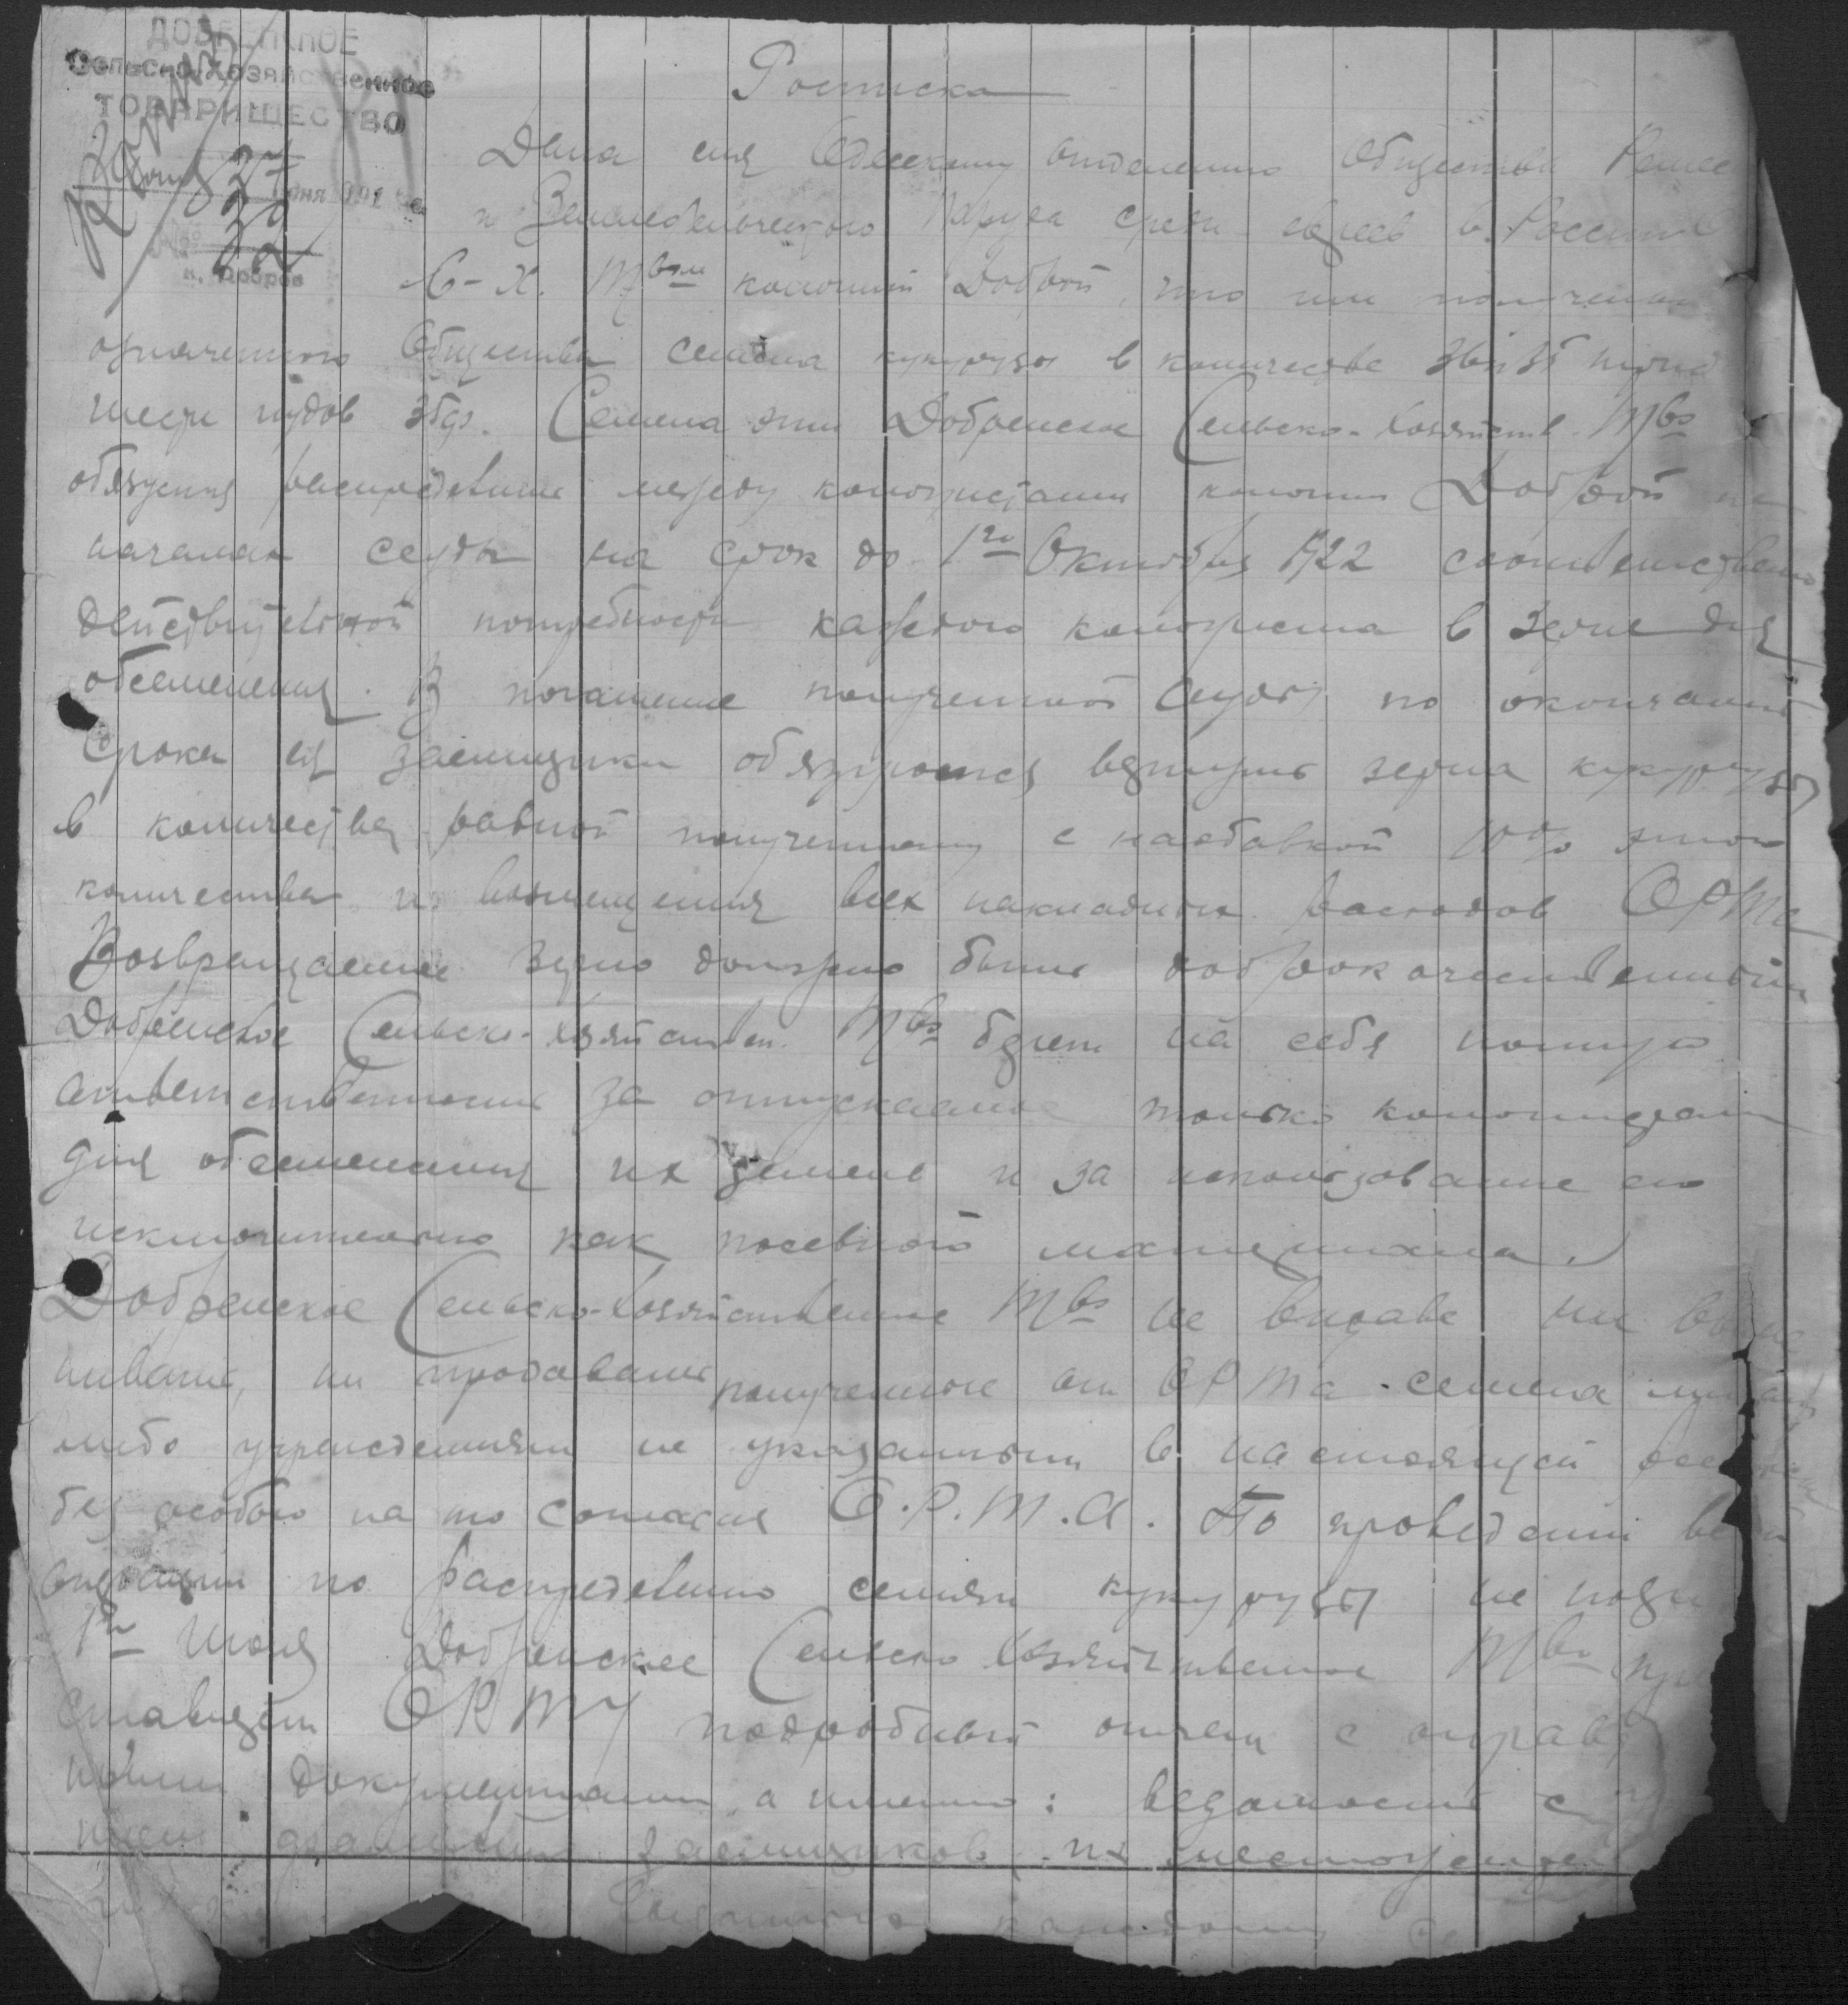 ДОБРЕНСКОЕ
Сельско-Хозяйственное
ТОВАРИЩЕСТВО
27
дня 192
к. Доброе
Росписка
Дана сия Одесскому отделению Общества Ремес
и Земледельческого Труда среди евреев в России
С-Х. Твом колонии Доброй, что им получены
означенного Общества семена кукурузы в количестве
шести пудов 36ф. Семена эти Добренское Сельско-Хозяйств. Тво
обязуется распределить между колонистами колонии Доброй на
началах ссуды на срок до 1го Октября 1922 соответственно
действительной потребности каждого колониста в зерне для
обсеменения. В погашение полученной ссуды по окончании
срока ея заемщики обязуются вернуть зерна кукурузы
в количестве равной полученному с надбавкой 10% этого
количества и возмещения всех накладных расходов ОРТа
Возвращаемое зерно должно быть доброкачественным
Добренское Сельско-Хозяйствен. Тво берет на себя полную
ответственность за отпускаемое только колонистам
для обсеменения их земель и за использование его
исключительно как посевного материала.
Добренское Сельско-Хозяйственное Тво не вправе ни
нивать, ни продавать полученные от ОРТа семена
либо учреждениям не указанным в настоящей
без особого на то согласия О.Р.Т.А. По проведении
операции по распределению семян кукурузы не
1го Июля Добренское Сельско Хозяйственное Тво
ставляет ОРТу подробный отчет с оправ
ными документами, а именно: ведомость с
заемщиков, их
каждому